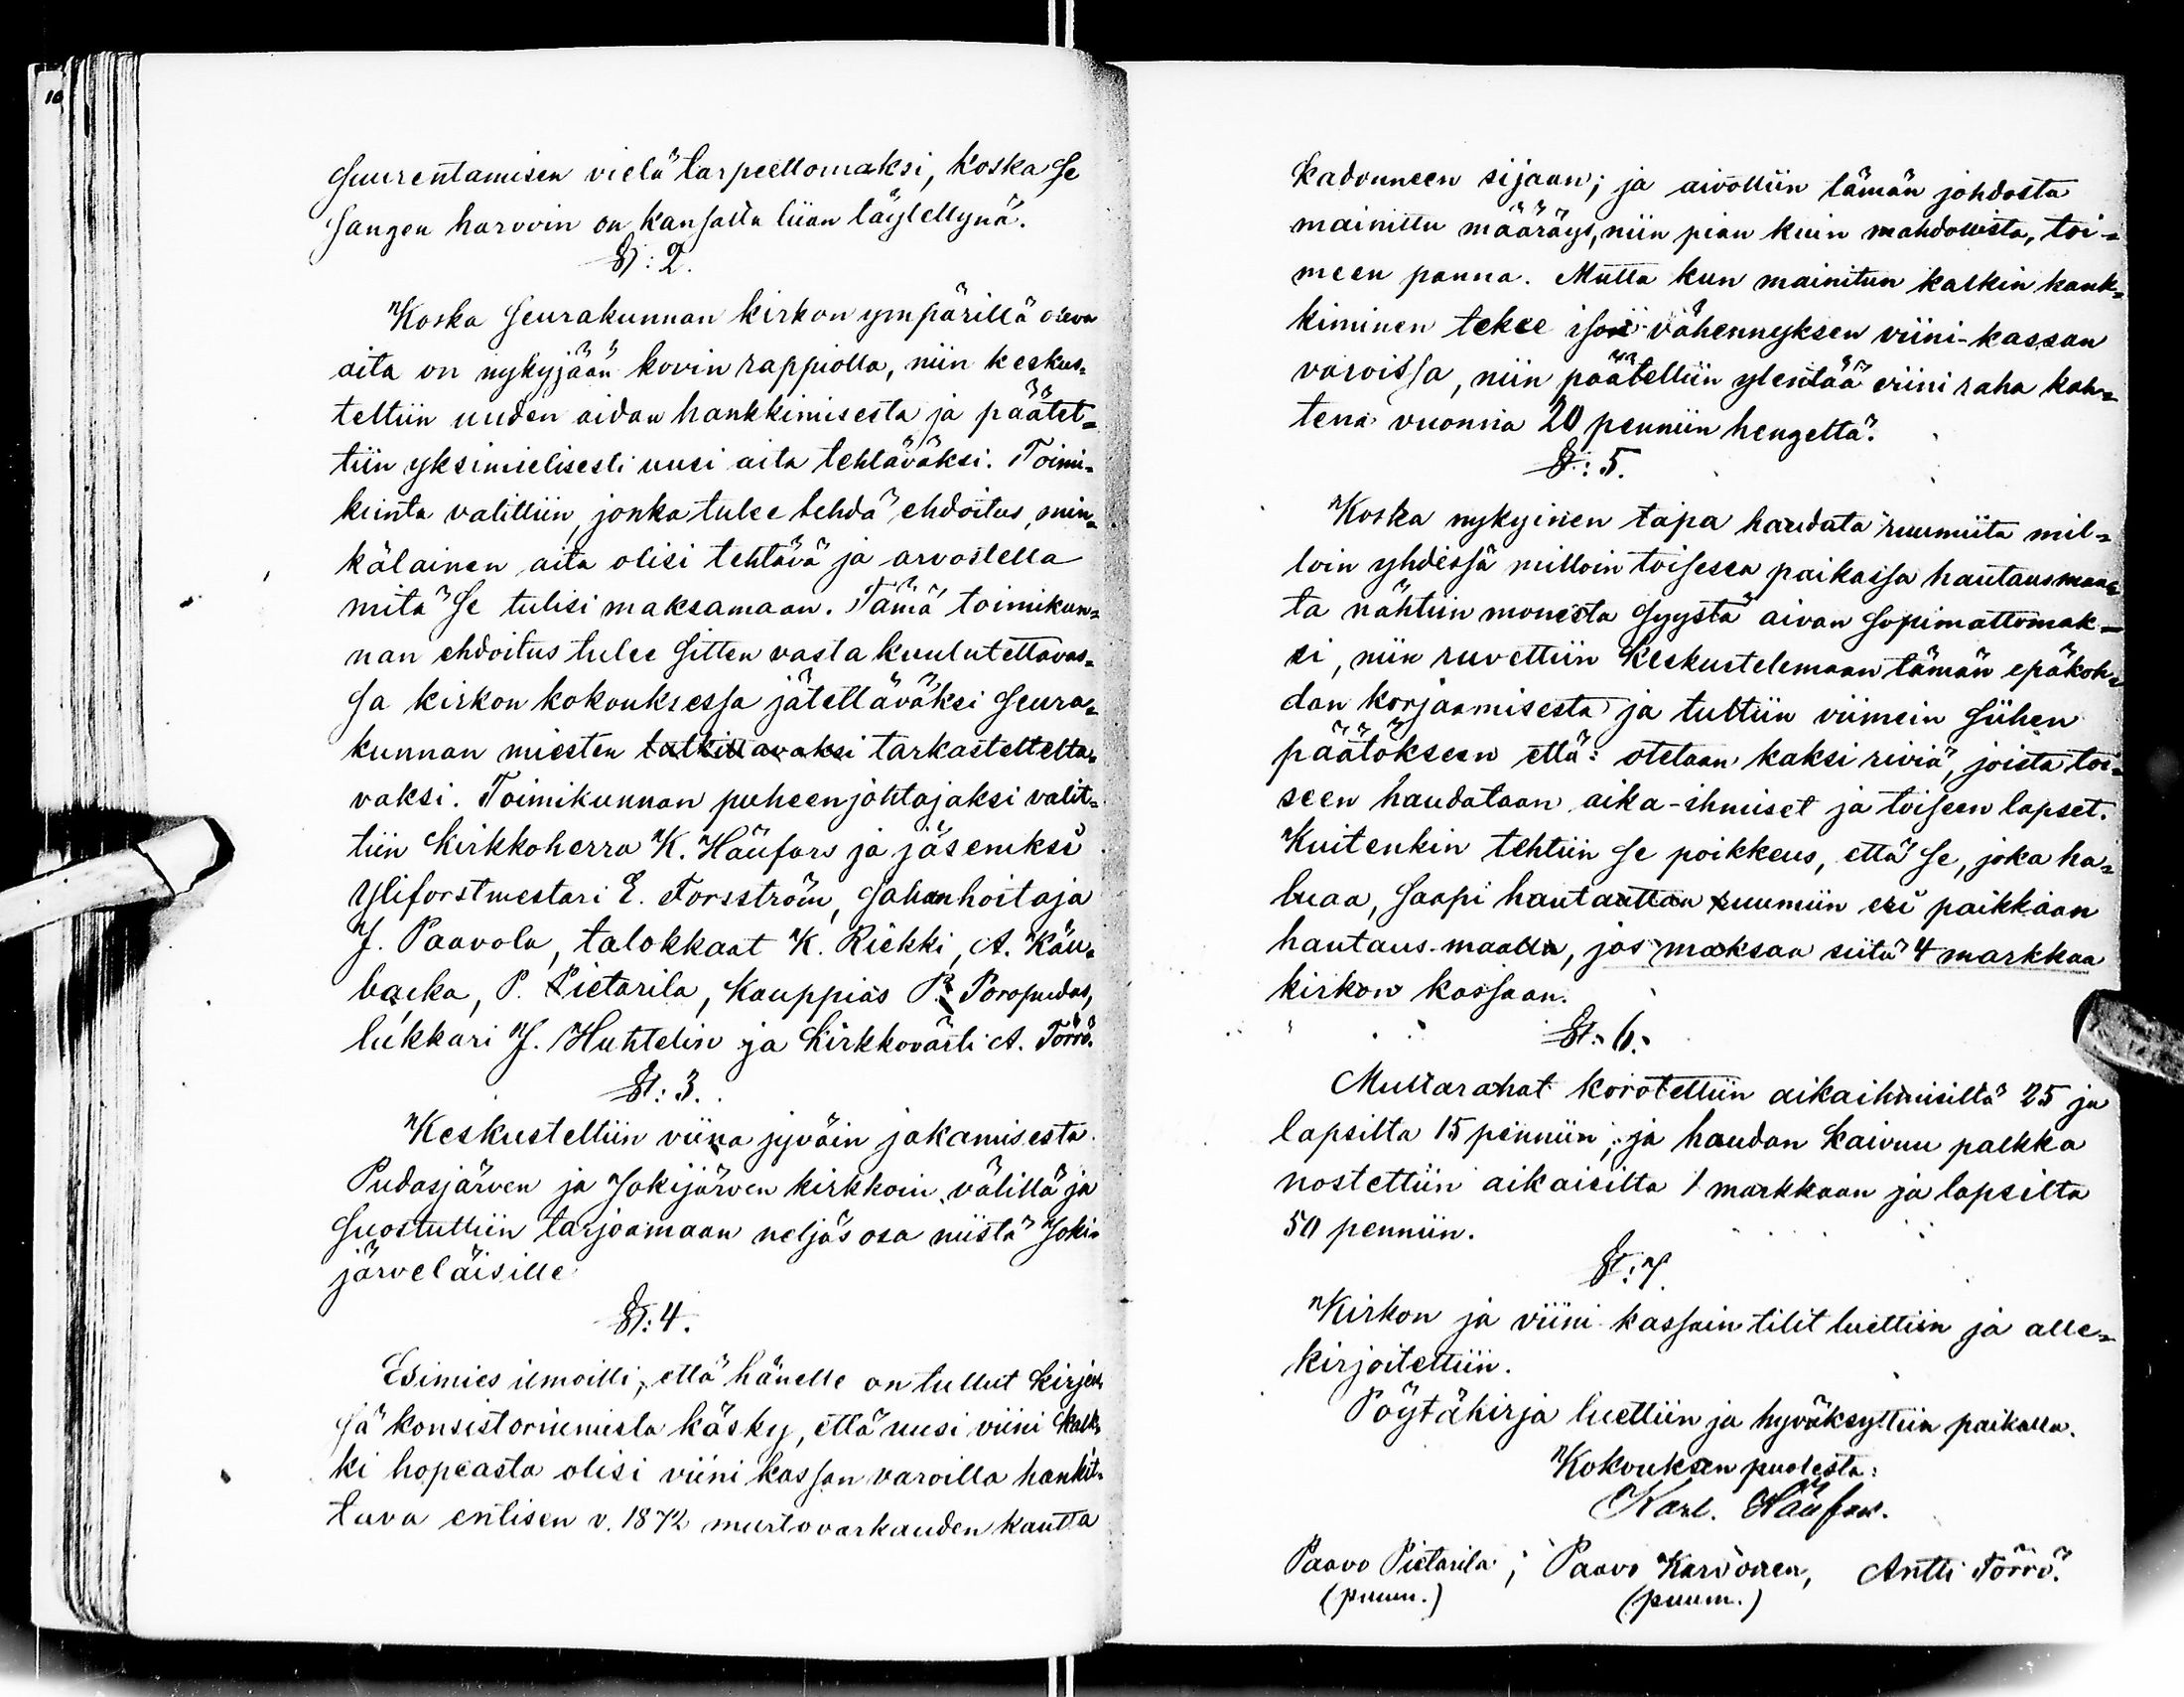 10
suurentamisen vielä tarpeettomaksi, koska se
sangen harvoin on kansalla liian täytettynä.
§: 2.
Koska seurakunnan kirkon ympärillä oleva
aita on nykyjään kovin rappiolla, niin keskus=
teltiin uuden aidan hankkimisesta ja päätet=
tiin yksimielisesti uusi aita tehtäväksi. Toimi=
kunta valittiin, jonka tulee tehdä ehdoitus, min=
kälainen aita olisi tehtävä ja arvostella
mitä se tulisi maksamaan. Tämä toimikun=
nan ehdoitus tulee sitten vasta kuulutettavas=
sa kirkon kokouksessa jätettäväksi seura=
kunnan miesten tutkittavaksi tarkasteltetta=
vaksi. Toimikunnan puheenjohtajaksi valit=
tiin kirkkoherra K. Häufors ja jäseniksi
Yliforstmestari E. Forsström, sahanhoitaja
J. Paavola, talokkaat K. Riekki, A.
P. Pietarila, kauppias P. Poropudas,
lukkari J. Huhtelin ja kirkkovärti A. Törrö.
§: 3.
Keskusteltiin viina jyväin jakamisesta
Pudasjärven ja Jokijärven kirkkoin välillä ja
suostuttiin tarjoamaan neljäs osa niistä Joki=
järveläisille
§: 4.
Esimies ilmoitti, että hänelle on tullut kirjees=
sä konsistoriumista käsky, että uusi viini kalk=
ki hopeasta olisi viini kassan varoilla hankit=
tava entisen v. 1872 murtovarkauden kautta
kadonneen sijaan; ja aivottiin tämän johdosta
mainittu määräys, niin pian kuin mahdollista, toi=
meen panna. Mutta kun mainitun kalkin hank=
kiminen tekee ison vähennyksen viini-kassan
varoissa, niin päätettiin ylentää viini raha kah=
tena vuonna 20 penniin hengeltä.
§: 5.
Koska nykyinen tapa haudata ruumiita mil=
loin yhdessä milloin toisessa paikassa hautausmaa=
ta nähtiin monesta syystä aivan sopimattomak=
si, niin ruvettiin keskustelemaan tämän epäkoh=
dan korjaamisesta ja tultiin viimein siihen
päätökseen että: otetaan kaksi riviä, joista toi=
seen haudataan aika-ihmiset ja toiseen lapset.
Kuitenkin tehtiin se poikkeus, että se, joka ha=
luaa, saapi hautauttaa ruumiin eri paikkaan
hautaus-maalla, jos maksaa siitä 4 markkaa
kirkon kassaan.
§: 6.
Multarahat korotettiin aikaihmisiltä 25 ja
lapsilta 15 penniin; ja haudan kaivuu palkka
nostettiin aikaisilta 1 markkaan ja lapsilta
50 penniin.
§: 7
Kirkon ja viini kassain tilit luettiin ja alle=
kirjoitettiin.
Pöytäkirja luettiin ja hyväksyttiin paikalla.
Kokouksen puolesta:
Karl. Häufors.
Paavo Pietarila; Paavo Karvonen, Antti Törrö.
(puum.) (puum.)